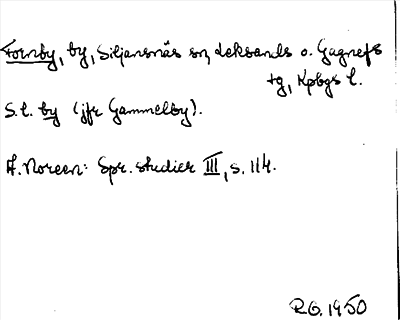 Fornby, by, Siljansnäs sn, Leksands o. Gagnefs
tg, Kpbgs l.
S. l. by (jfr Gammelby).
A. Noreen: Spr. studier III, s. 114.
R.O. 1950